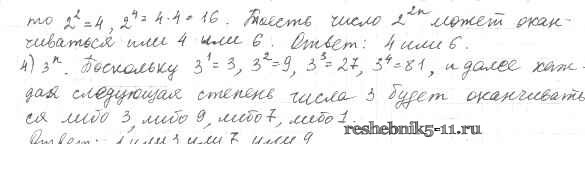 то 2² = 4, 2⁴ = 4·4 = 16. Тоесть число 2²ⁿ может окан-
чиваться или 4 или 6. Ответ: 4 или 6.
4) 3ⁿ. Поскольку 3¹ = 3, 3² = 9, 3³ = 27, 3⁴ = 81, и далее каж-
дая следующая степень числа 3 будет оканчивать
ся либо 3, либо 9, либо 7, либо 1.
reshebnik5-11.ru
Ответ: 1 или 3 или 7 или 9